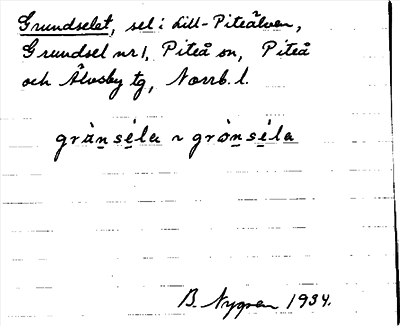 Grundselet, sel i Lill-Piteälven,
Grundsel nr 1, Piteå sn, Piteå
och Älvsby tg, Norrb. l.
grànséla ~ grònséla
B. Nygren 1934.